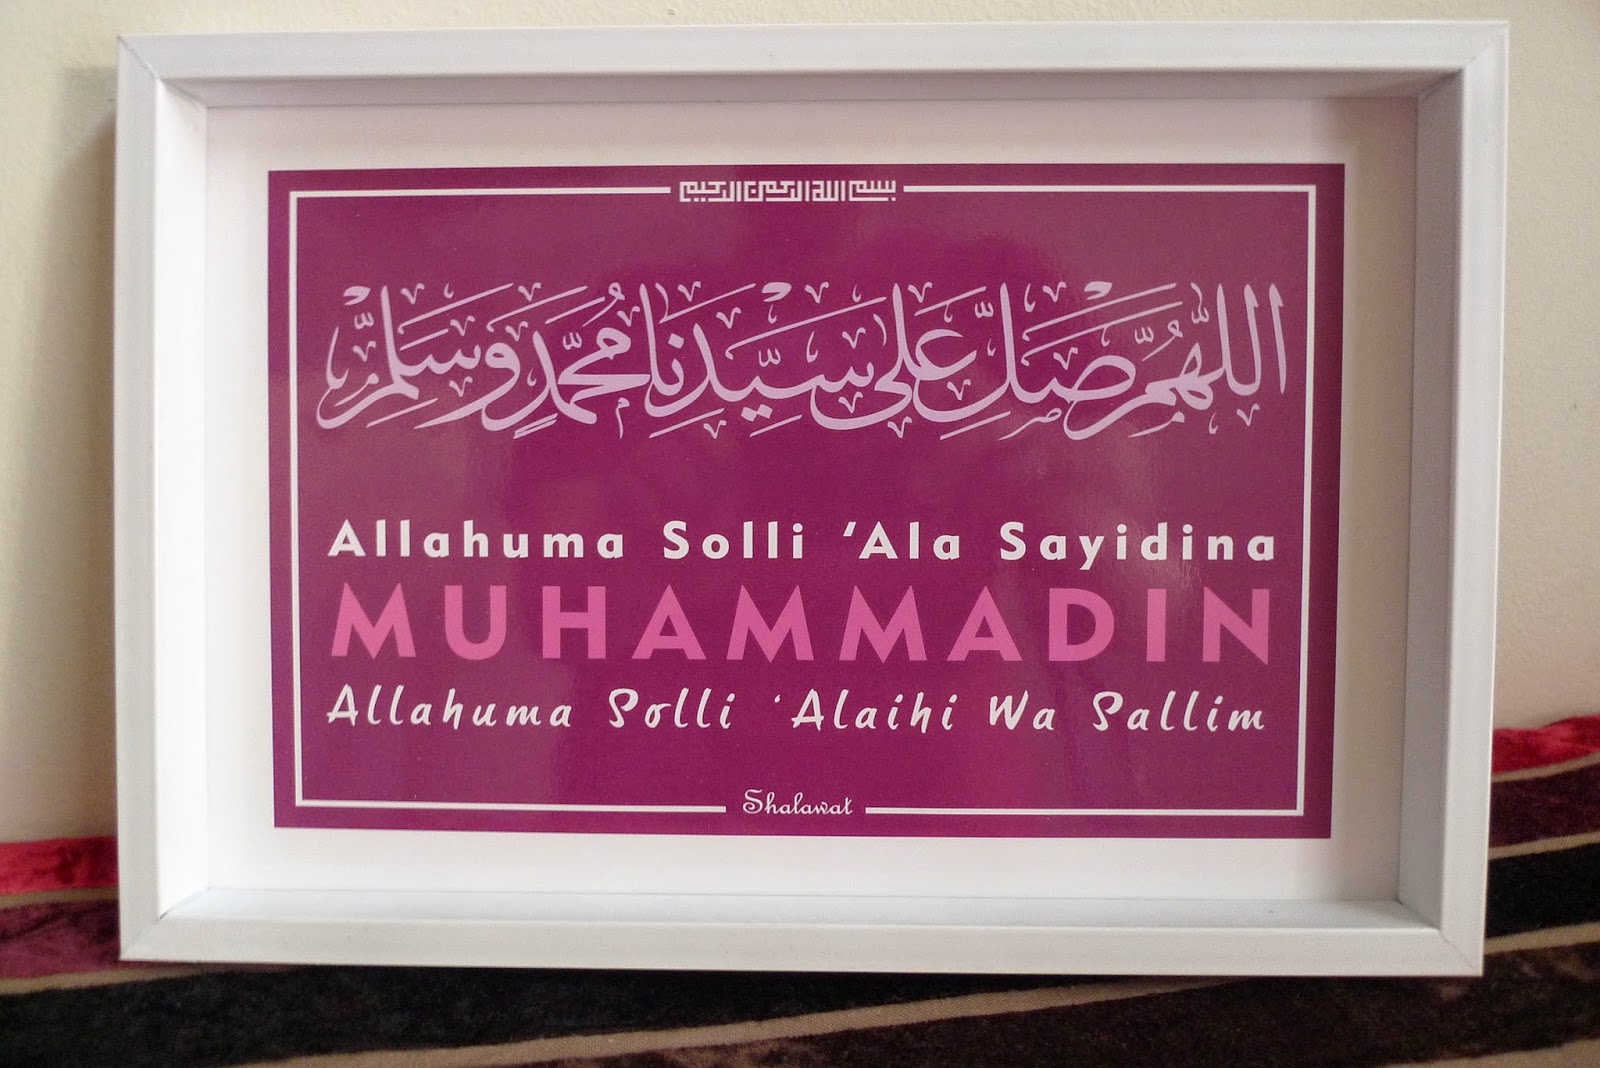 بسم الله الرحمن الرحيم
اللَّهُمَّ صَلِّ عَلَى سَيِّدِنَا مُحَمَّدٍ وَسَلِّمْ
Allahuma Solli ‘Ala Sayidina
MUHAMMADIN
Allahuma Solli ‘Alaihi Wa Sallim
Shalawat